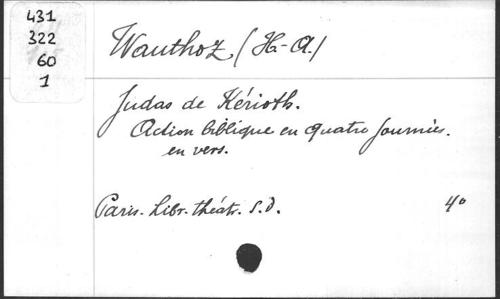 431
322
60
1
Wauthoz, (H-A.)
Judas de Kérioth.
Action biblique en quatre journées.
en vers.
Paris. Libr. théatr. S.d.
4°